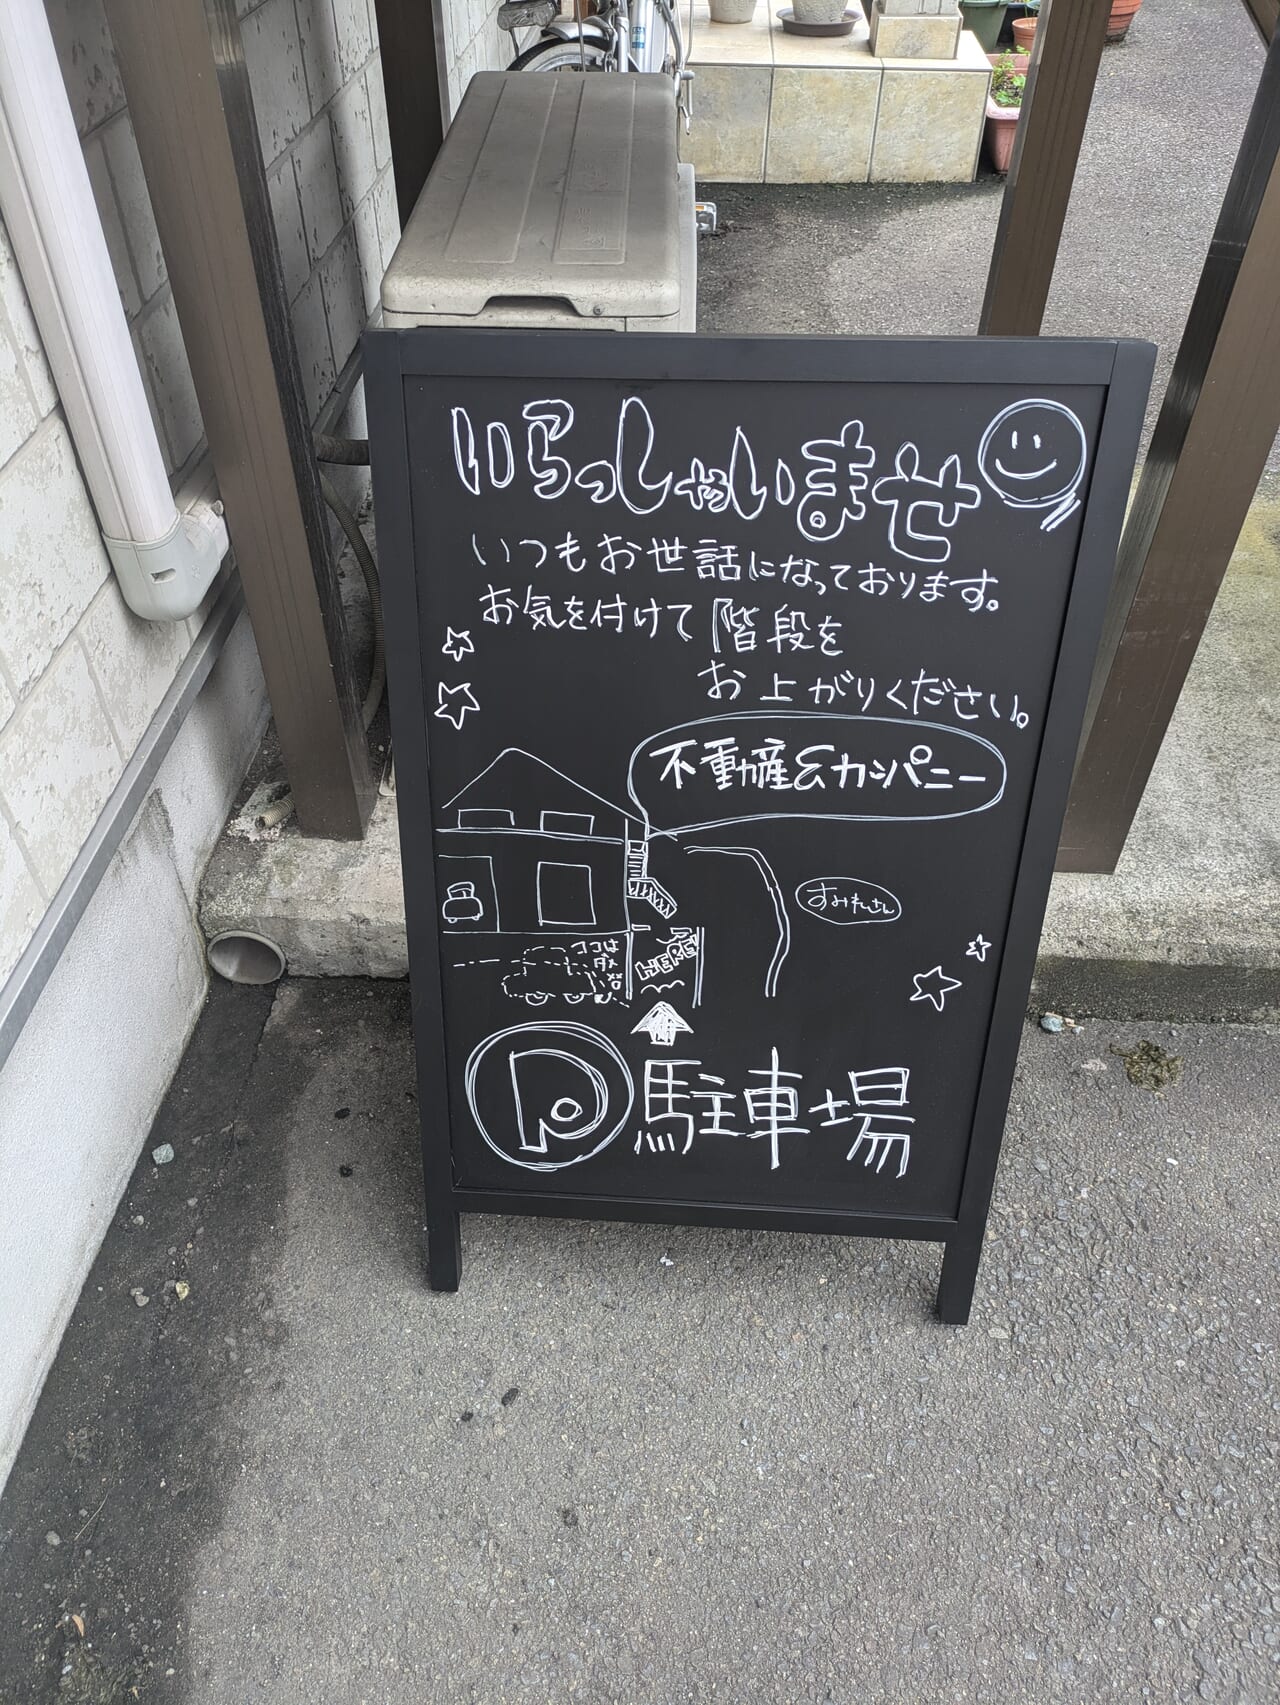 いらっしゃいませ
いつもお世話になっております。
お気を付けて階段を
お上がりください。
不動産&カンパニー
すみれさん
ココは
HERE
P 駐車場